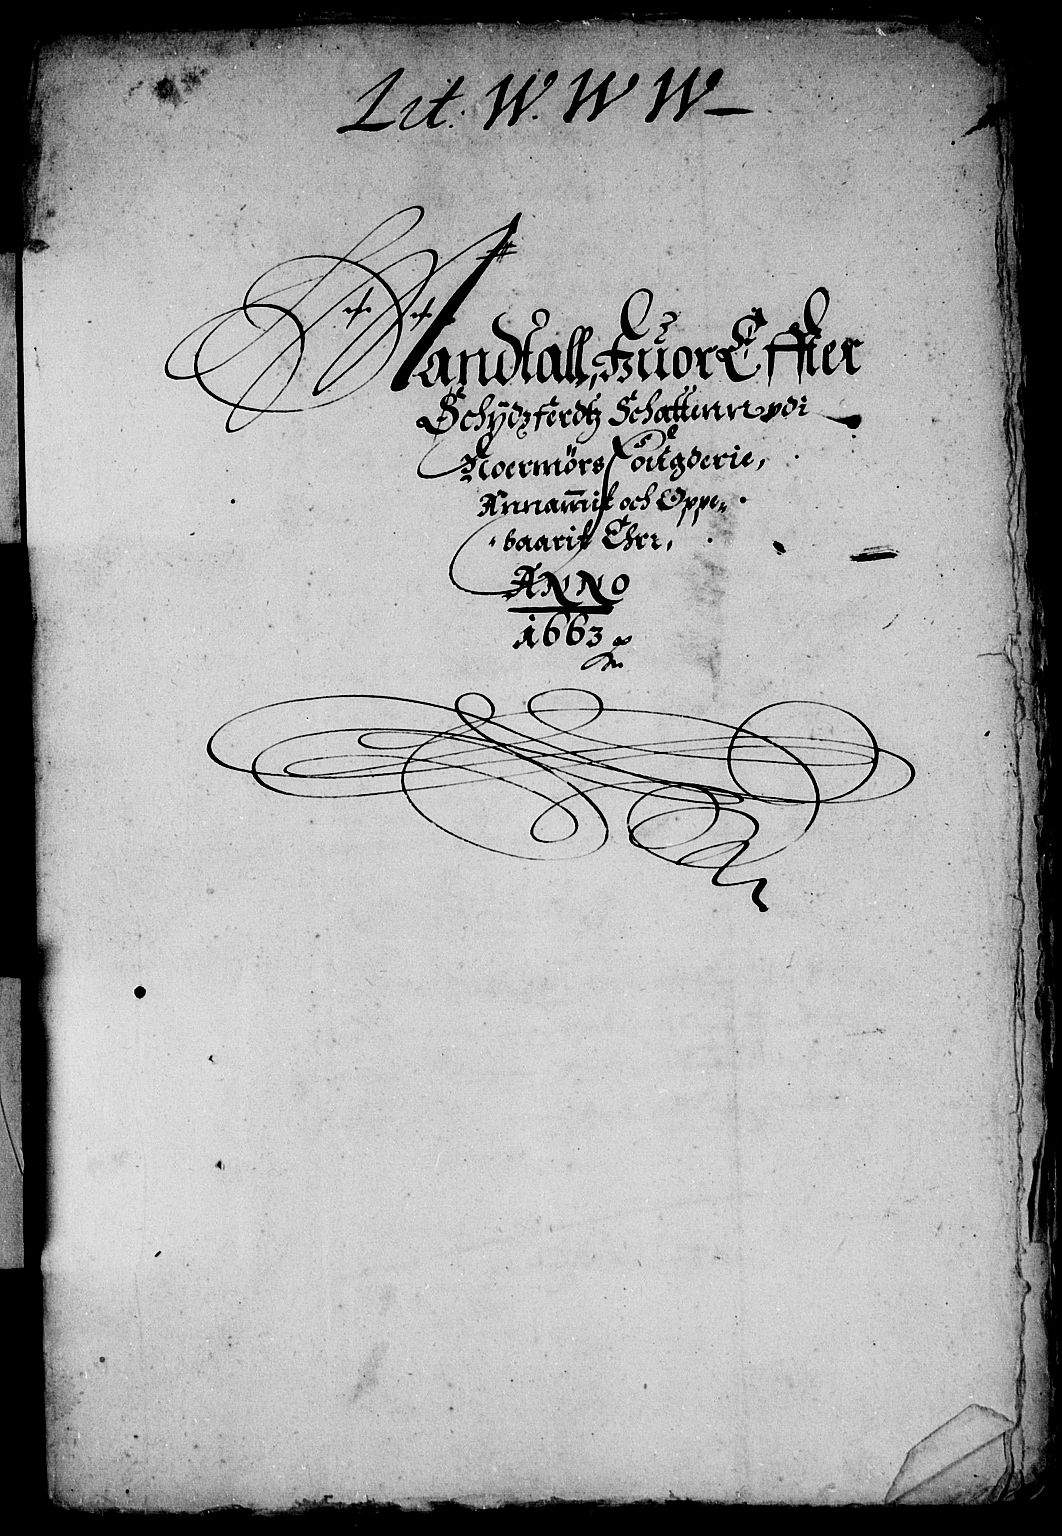 Lit. W. W W
Mandtall, huor Effter
Schÿdzferdtz Schattenn vdi
Noermörs Fougderie,
Annammit och Oppe„
baarit Ehr,
ANNO
1663